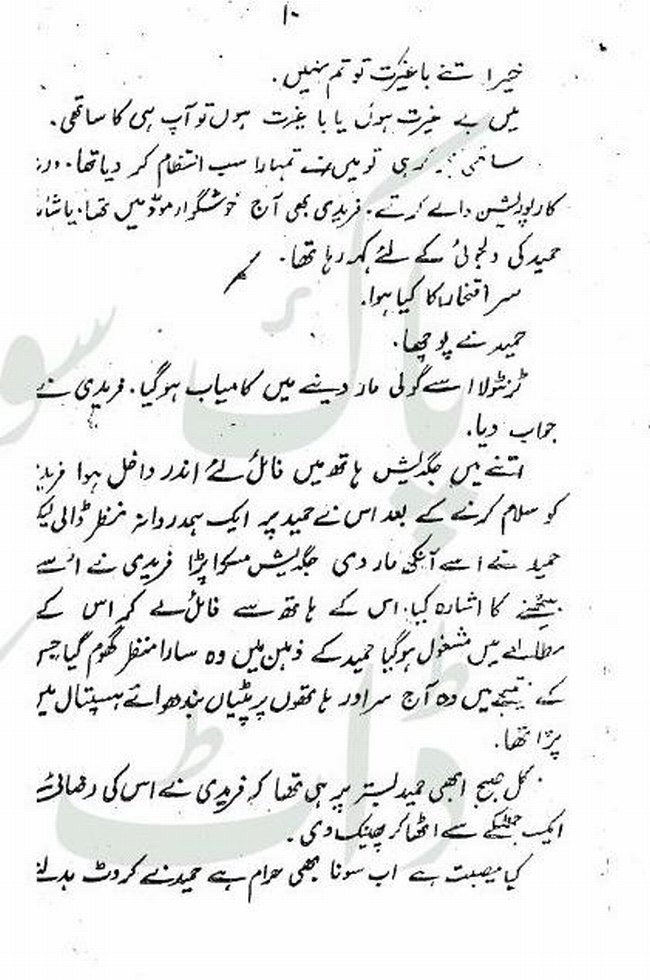 ۱۰
خیر اتنے باغیرت تو تم نہیں.
میں بے غیرت ہوں یا با غیرت ہوں تو آپ ہی کا ساتھی.
تو میں نے تمہارا سب انتظام کر دیا تھا.
کارپوریشن والے کرتے. فریدی بھی آج خوشگوار موڈ میں تھا. یا شاید
حمید کی دلجوئی کے لئے کہہ رہا تھا.
سر افتخار کا کیا ہوا.
حمید نے پوچھا.
ٹرنٹولا اسے گولی مار دینے میں کامیاب ہوگیا. فریدی نے
جواب دیا.
اتنے میں جگدیش ہاتھ میں فائل لئے اندر داخل ہوا
کو سلام کرنے کے بعد اس نے حمید پر ایک ہمدردانہ نظر ڈالی
حمید نے اسے آنکھ مار دی جگدیش مسکرا پڑا فریدی نے اسے
بیٹھنے کا اشارہ کیا. اس کے ہاتھ سے فائل لے کر اس کے
مطالعے میں مشغول ہوگیا حمید کے ذہن میں وہ سارا منظر گھوم گیا جس
کے نتیجے میں وہ آج سر اور ہاتھوں پر پٹیاں بندھوائے ہسپتال میں
پڑا تھا.
کل صبح ابھی حمید بستر پر ہی تھا کہ فریدی نے اس کی رضائی
ایک جھٹکے سے اٹھا کر پھینک دی.
کیا مصیبت ہے اب سونا بھی حرام ہے حمید نے کروٹ
پاک سو
ڈاٹ